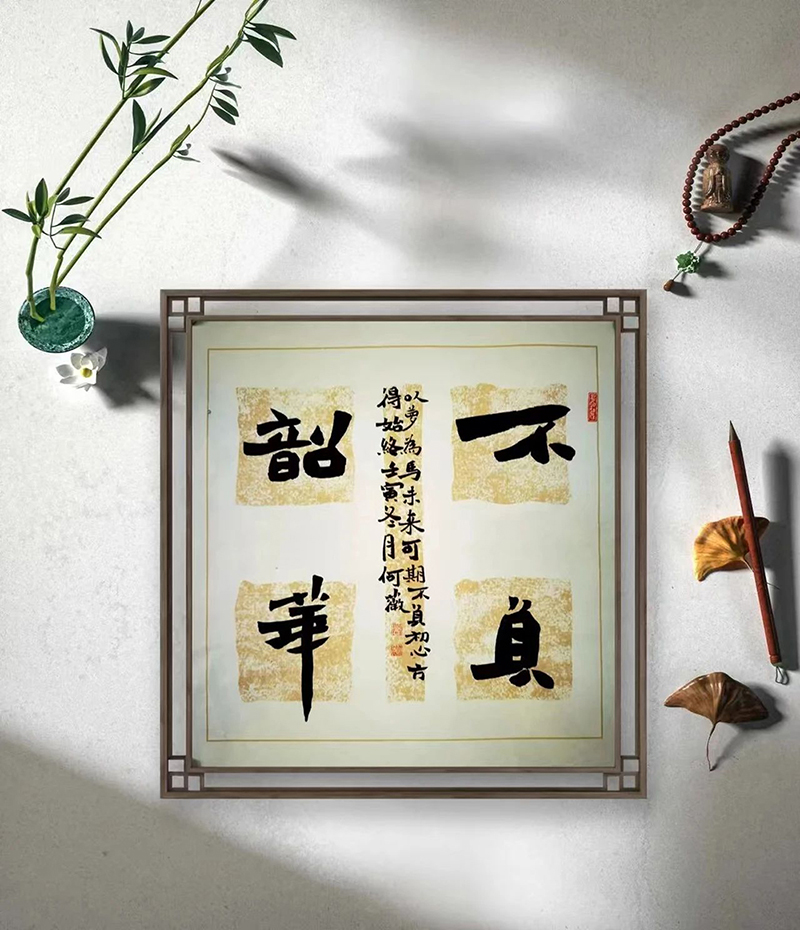 不負
韶華
以夢為馬未来可期不負初心方
得始終壬寅冬月何薇